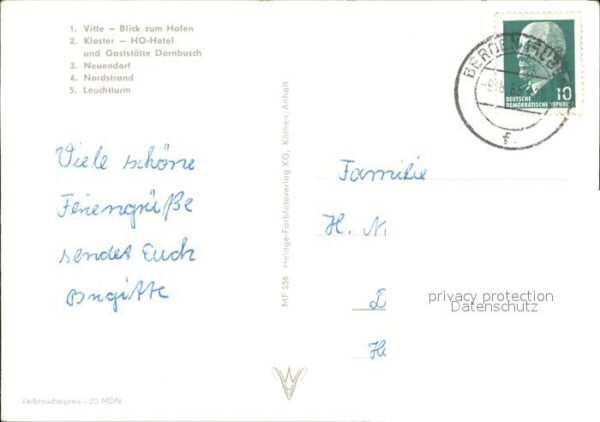 1. Vitte – Blick zum Hafen
2. Kloster – HO-Hotel
und Gaststätte Dornbusch
3. Neuendorf
4. Nordstrand
5. Leuchtturm
Viele schöne
Feriengrüße
sendet Euch
Brigitte
Verbraucherpreis -,20 MDN
MF 556 Helage-Farbfotoverlag KG, Köthen/Anhalt
10
DEUTSCHE
DEMOKRATISCHE REPUBLIK
Familie
H. N.
privacy protection
Datenschutz